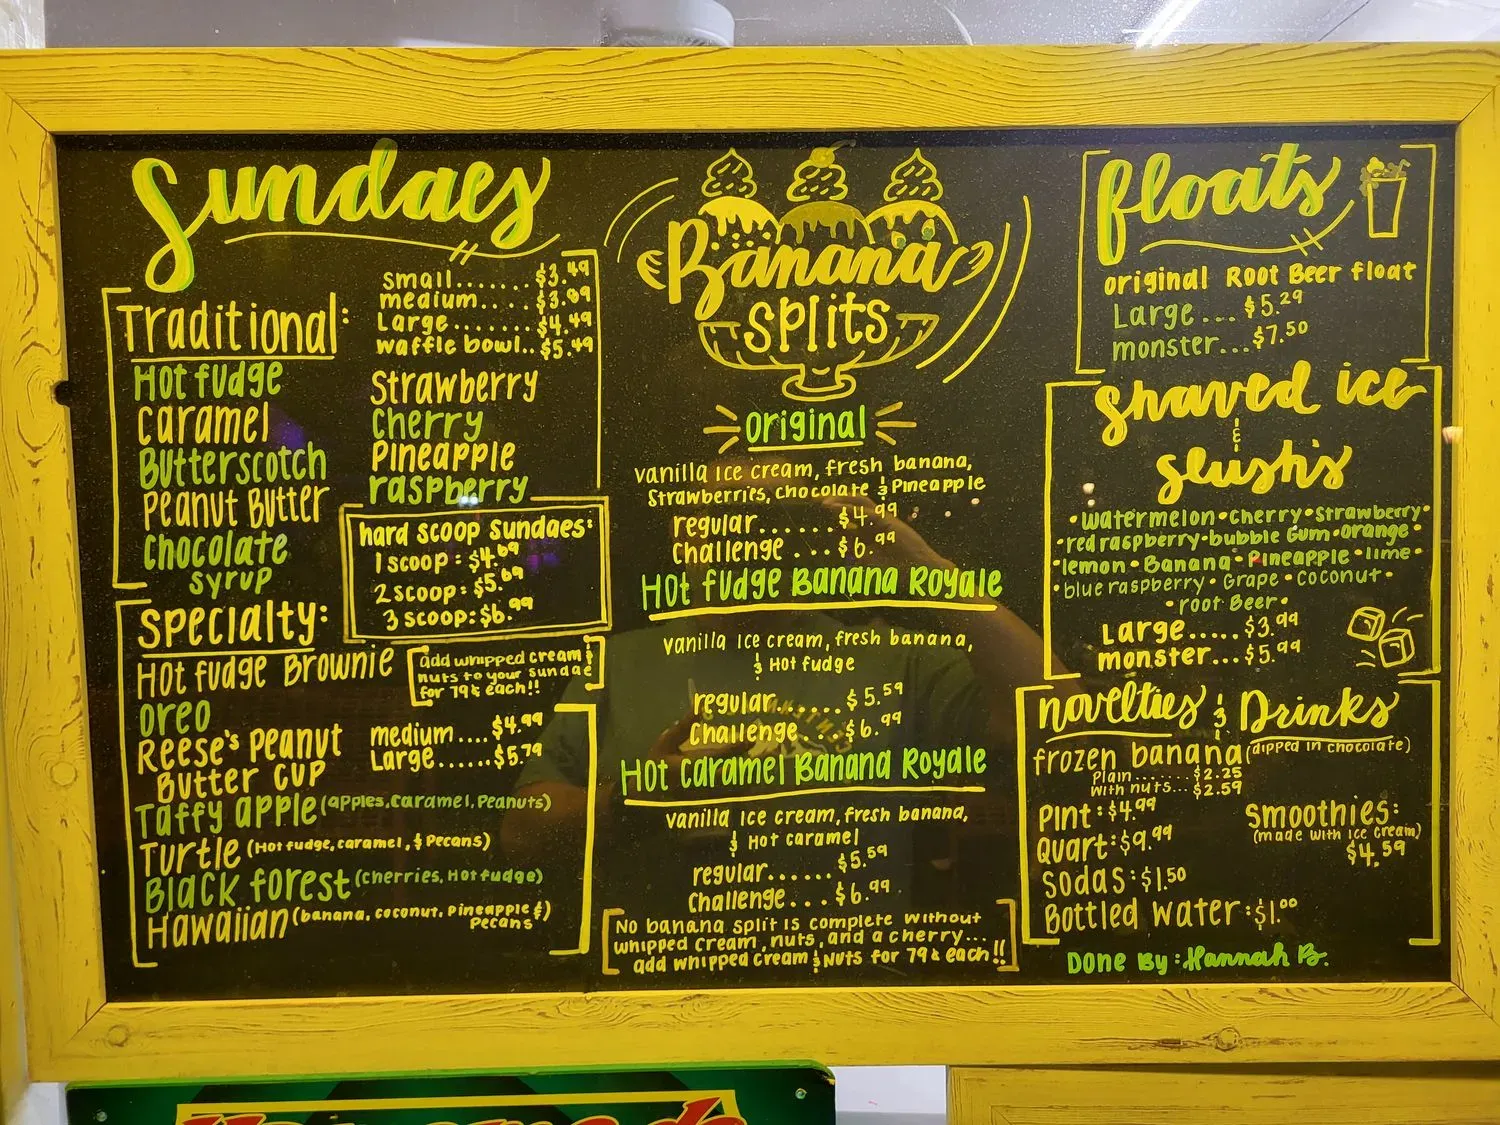 Sundaes
Traditional:
small....... $3.49
medium.... $3.89
Large....... $4.49
waffle bowl.. $5.49
Hot fudge
Caramel
Butterscotch
Peanut Butter
Chocolate
syrup
Strawberry
Cherry
Pineapple
raspberry
hard scoop sundaes:
1 scoop: $4.69
2 scoop: $5.69
3 scoop: $6.99
Specialty:
Hot fudge Brownie
add whipped cream &
nuts to your sundae
for 79¢ each!!
Oreo
Reese's Peanut
Butter Cup
medium.... $4.99
Large...... $5.79
Taffy apple (apples, caramel, Peanuts)
Turtle (Hot fudge, caramel, & Pecans)
Black forest (cherries, Hot fudge)
Hawaiian (banana, coconut, pineapple &)
Pecans
Banana
splits
original
vanilla ice cream, fresh banana,
Strawberries, chocolate & Pineapple
regular...... $4.99
challenge ... $6.99
Hot fudge Banana Royale
vanilla ice cream, fresh banana,
& Hot fudge
regular...... $5.59
challenge... $6.99
Hot caramel Banana Royale
vanilla ice cream, fresh banana,
& Hot caramel
regular...... $5.59
challenge... $6.99
No banana split is complete without
whipped cream, nuts, and a cherry...
add whipped cream & Nuts for 79¢ each!!
floats
original Root Beer float
Large... $5.29
monster... $7.50
shaved ice
&
slush's
• watermelon • cherry • strawberry •
• red raspberry • bubble Gum • orange •
• lemon • Banana • Pineapple • lime •
• blue raspberry • Grape • Coconut •
• root Beer •
Large..... $3.99
monster... $5.99
novelties & Drinks
frozen banana (dipped in chocolate)
Plain....... $2.25
with nuts... $2.59
Pint: $4.99
Quart: $9.99
Sodas: $1.50
Bottled water: $1.00
Smoothies:
(made with ice cream)
$4.59
Done By: Hannah B.